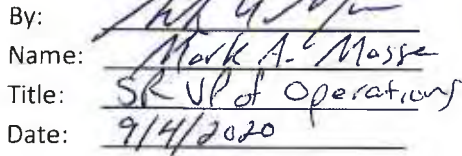 By:
Name: Mark A. Masse
Title: SR VP of Operations
Date: 9/4/2020